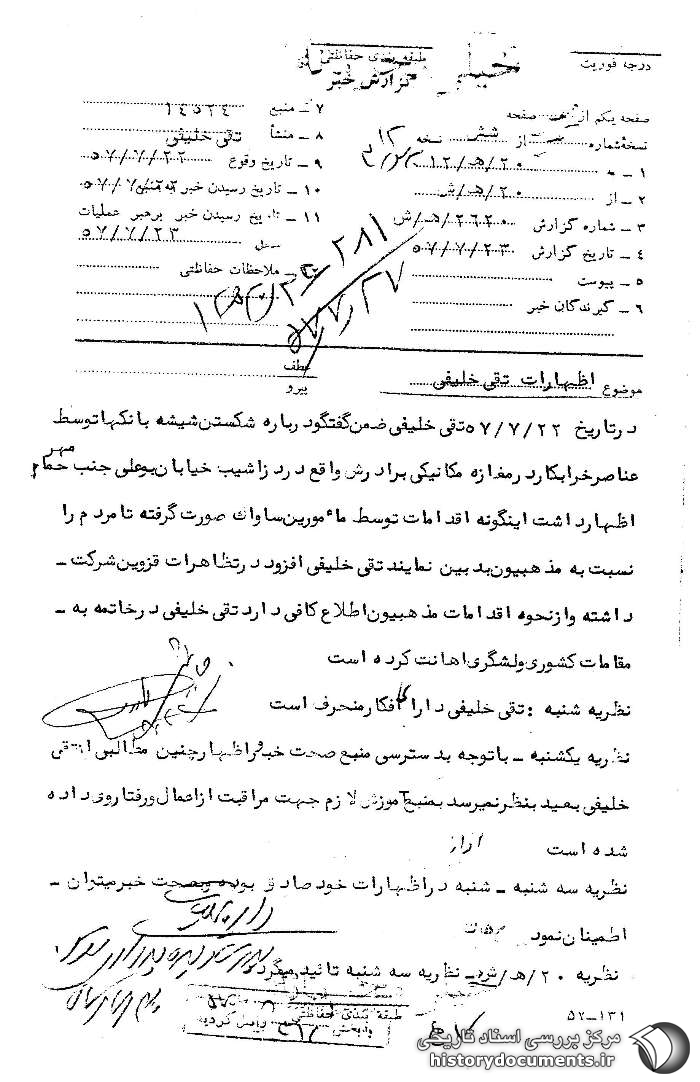 درجه فوریت
طبقه بندی حفاظتی
گزارش خبر
صفحه یکم از صفحه
نسخهٔ شماره از شش نسخه
۱ – به ۲۰/هـ/۱۲
۲ – از ۲۰/هـ/ش
۳ – شماره گزارش ۲۶۲۰/هـ/ش
۴ – تاریخ گزارش ۵۷/۷/۲۳۰
۵ – پیوست
۶ – گیرندگان خبر
۷ – منبع ۱٤۵۲٤
۸ – منشأ تقی خلیفی
۹ – تاریخ وقوع ۵۷/۷/۲۲
۱۰ – تاریخ رسیدن خبر به منبع ۵۷/۷/۲۲
۱۱ – تاریخ رسیدن خبر برهبر عملیات
محل ۵۷/۷/۲۳
ملاحظات حفاظتی
۲۸۱
موضوع اظهارات تقی خلیفی
عطف
پیرو
درتاریخ ۵۷/۷/۲۲ تقی خلیفی ضمن گفتگودرباره شکستن شیشه بانکها توسط
عناصرخرابکاردرمغازه مکانیکی برادرش واقع دردزاشیب خیابان بوعلی جنب حمام مهر
اظهارداشت اینگونه اقدامات توسط ماٴمورین ساواک صورت گرفته تامردم را
نسبت به مذهبیون بدبین نمایند تقی خلیفی افزود درتظاهرات قزوین شرکت –
داشته وازنحوه اقدامات مذهبیون اطلاع کافی دارد تقی خلیفی درخاتمه به –
مقامات کشوری ولشگری اهانت کرده است
نظریه شنبه : تقی خلیفی دارای افکارمنحرف است
نظریه یکشنبه – باتوجه بدسترسی منبع صحت خبرواظهارچنین مطالبی ازتقی
خلیفی بعید بنظرنمیرسد بمنبع آموزش لازم جهت مراقبت ازاعمال ورفتاروی داده
شده است
نظریه سه شنبه – شنبه دراظهارات خودصادق بوده وبصحت خبرمیتوان –
اطمینان نمود
نظریه ۲۰/هـ/ش – نظریه سه شنبه تائید میگردد
طبقه بندی حفاظتی
۵۲–۱۳۱
مرکز بررسی اسناد تاریخی
historydocuments.ir